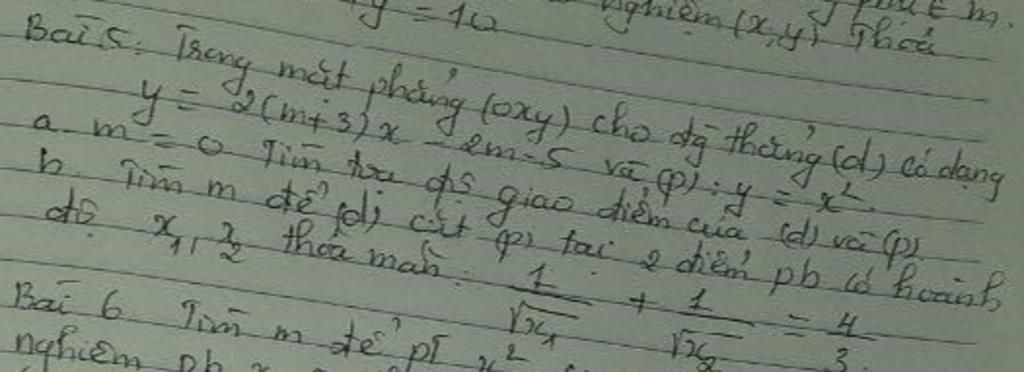 y = 10
nghiệm (x,y) thoả
Bài 5. Trong mặt phẳng (oxy) cho đg thẳng (d) có dạng
y = 2(m+3)x - 2m-5 và (p): y = x²
a. m = 0 Tìm toạ độ giao điểm của (d) và (p)
b. Tìm m để (d) cắt (p) tại 2 điểm pb có hoành
độ x₁, x₂ thoả mãn. 1/√x₁ + 1/√x₂ = 4/3.
Bài 6. Tìm m để pt x²
nghiệm pb